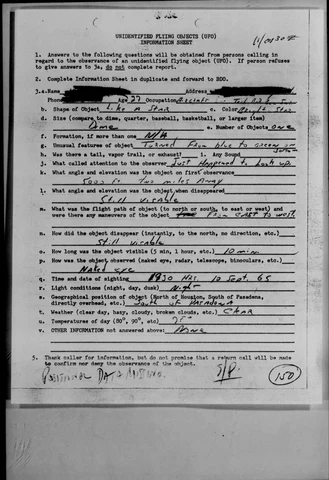 UNIDENTIFIED FLYING OBJECTS (UFO)
INFORMATION SHEET
1. Answers to the following questions will be obtained from persons calling in
regard to the observance of an unidentified flying object (UFO). If person refuses
to give answers to 3a, do not complete report.
2. Complete Information Sheet in duplicate and forward to BDO.
3.a.
Phone Age 27 Occupation
b. Shape of Object Like A Star c. Color
d. Size (compare to dime, quarter, baseball, basketball, or larger item)
Dime e. Number of Objects one
f. Formation, if more than one N/A
g. Unusual features of object Turned From blue to green or
h. Was there a tail, vapor trail, or exhaust? i. Any Sound
j. What called attention to the observer Just Happened to Look up
k. What angle and elevation the object on first observance
5000 Ft two miles Away
l. What angle and elevation was the object when disappeared
Still visable
m. What was the flight path of object (to north or south, to east or west) and
were there any maneuvers of the object From EAST to west
n. How did the object disappear (instantly, to the north, no direction, etc.)
Still visable
o. How long was the object visible (5 min, 1 hour, etc.) 10 min
p. How was the object observed (naked eye, radar, telescope, binoculars, etc.)
Naked eye
q. Time and date of sighting 1930 Hrs. 10 Sept. 65
r. Light conditions (night, day, dusk) Night
s. Geographical position of object (North of Houston, South of Pasadena,
directly overhead, etc.) South of PASADENA
t. Weather (clear day, hazy, cloudy, broken clouds, etc.) Clear
u. Temperatures of day (80°, 90°, etc)
v. OTHER INFORMATION not answered above: None
5. Thank caller for information, but do not promise that a return call will be made
to confirm nor deny the observance of the object.
POSITIONAL DATA MISSING.
150